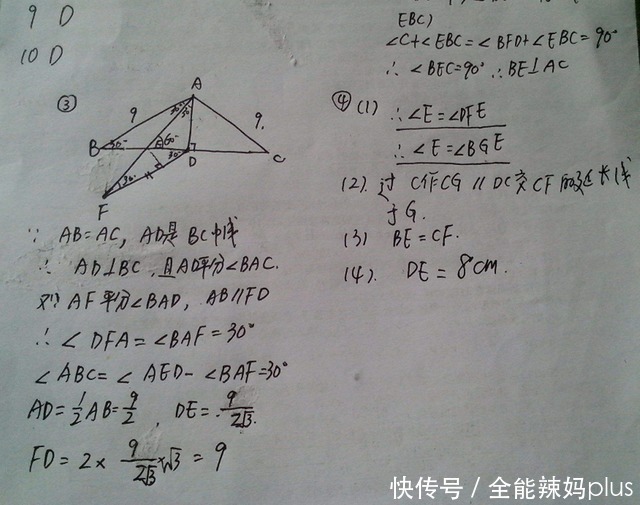 9 D
10 D
EBC)
∠C+∠EBC=∠BFD+∠EBC=90°
∴ ∠BEC=90° ∴ BE⊥AC
③
A
9
9.
30°
30°
B
30°
60°
30°
D
C
30°
F
∵ AB=AC, AD是BC中线
∴ AD⊥BC, 且AD平分∠BAC.
又∵ AF平分∠BAD, AB∥FD
∴ ∠DFA=∠BAF=30°
∠ABC=∠AED-∠BAF=30°
AD=1/2AB=9/2, DE=9/2√3.
FD=2×9/2√3×√3=9
④(1) ∴∠E=∠DFE
∴∠E=∠BGE
(2). 过C作CG∥DC交CF的延长线
于G.
(3) BE=CF.
(4). DE=8cm.
快传号/全能辣妈plus